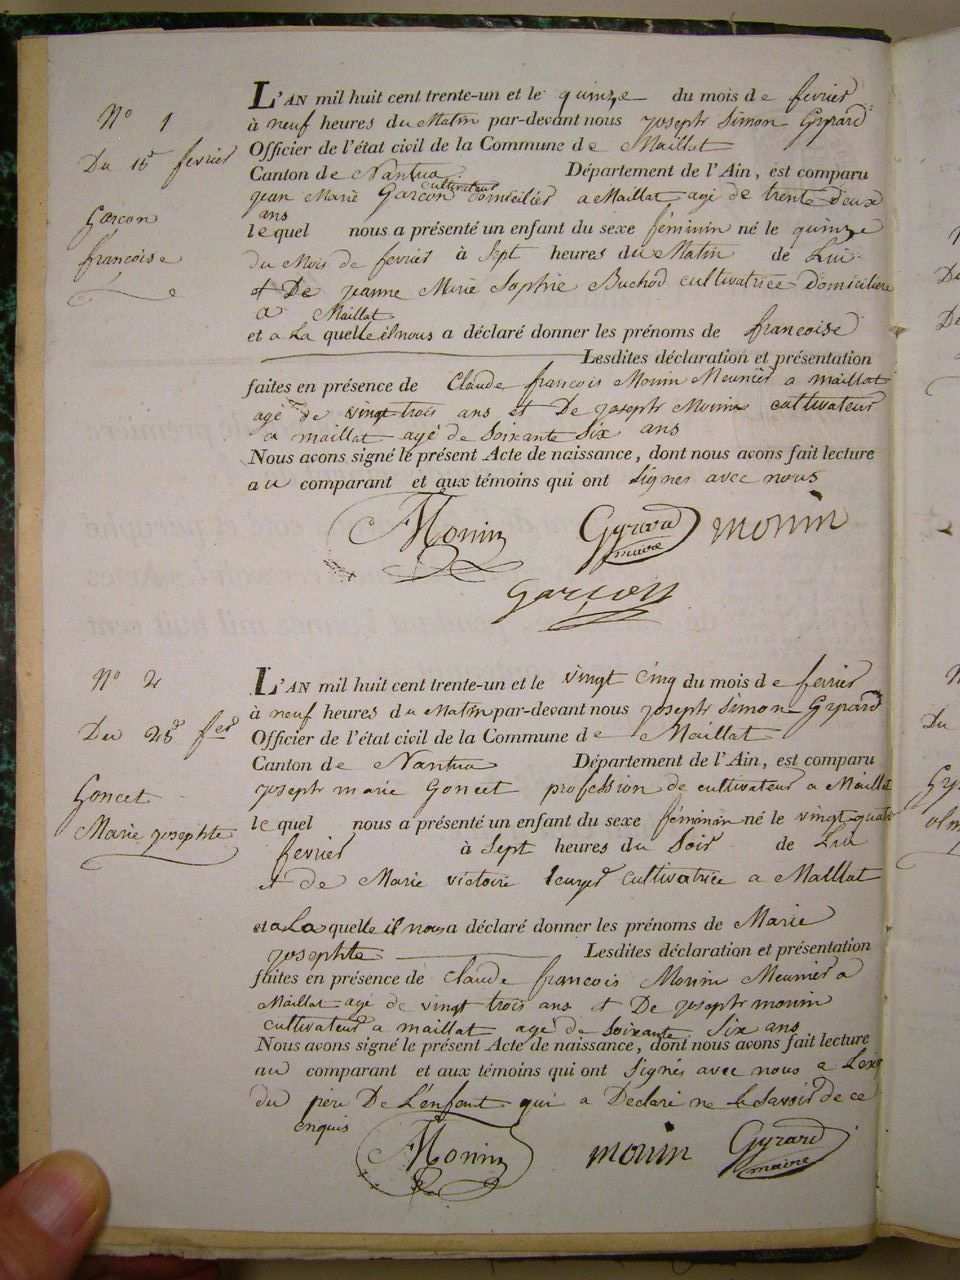 N° 1
Du 15e fevrier
Garcon
francoise
L'AN mil huit cent trente-un et le quinze du mois de fevrier
à neuf heures du Matin par-devant nous joseph Simon Gyrard
Officier de l'état civil de la Commune de Maillat
Canton de Nantua Département de l'Ain, est comparu
jean Marie Garcon cultivateur domicilier a Maillat agé de trente deux
ans
lequel nous a présenté un enfant du sexe féminin né le quinze
du Mois de fevrier à Sept heures du Matin de Lui
et De jeanne Merie Sophie Buchod cultivatrice domiciliere
a Maillat
et a La quelle il nous a déclaré donner les prénoms de francoise
Lesdites déclaration et présentation
faites en présence de Claude francois Monin Meunier a maillat
agé de vingt trois ans et De joseph Monin cultivateur
a maillat agé de Soixante Six ans
Nous avons signé le présent Acte de naissance, dont nous avons fait lecture
au comparant et aux témoins qui ont Signés avec nous
Monin Gyrard maire monin
Garcon
N° 2
Du 25e fer
Goncet
Marie josephte
L'AN mil huit cent trente-un et le vingt cinq du mois de fevrier
à neuf heures du Matin par-devant nous joseph Simon Gyrard
Officier de l'état civil de la Commune de Maillat
Canton de Nantua Département de l'Ain, est comparu
joseph marie Goncet profession de cultivateur a Maillat
lequel nous a présenté un enfant du sexe féminin né le vingt quatre
fevrier à Sept heures du Soir de Lui
et de Marie victoire cultivatrice a Maillat
et a La quelle il nous a déclaré donner les prénoms de Marie
josephte Lesdites déclaration et présentation
faites en présence de Claude francois Monin Meunier a
Maillat agé de vingt trois ans et De joseph monin
cultivateur a maillat agé de Soixante Six ans
Nous avons signé le présent Acte de naissance, dont nous avons fait lecture
au comparant et aux témoins qui ont Signés avec nous a
du père De L'enfant qui a Déclaré ne le Savoir de ce
enquis
Monin monin Gyrard maire